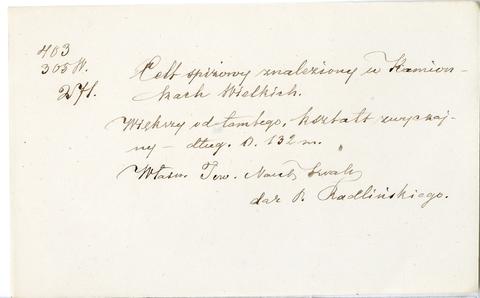 403
305 W.
271.
Celt spiżowy znaleziony w Kamion-
kach Wielkich.
Większy od tamtego, kształt zwyczaj-
ny – dług. 0.132 m.
Własn. Tow. Nauk.
dar P. Radlińskiego.